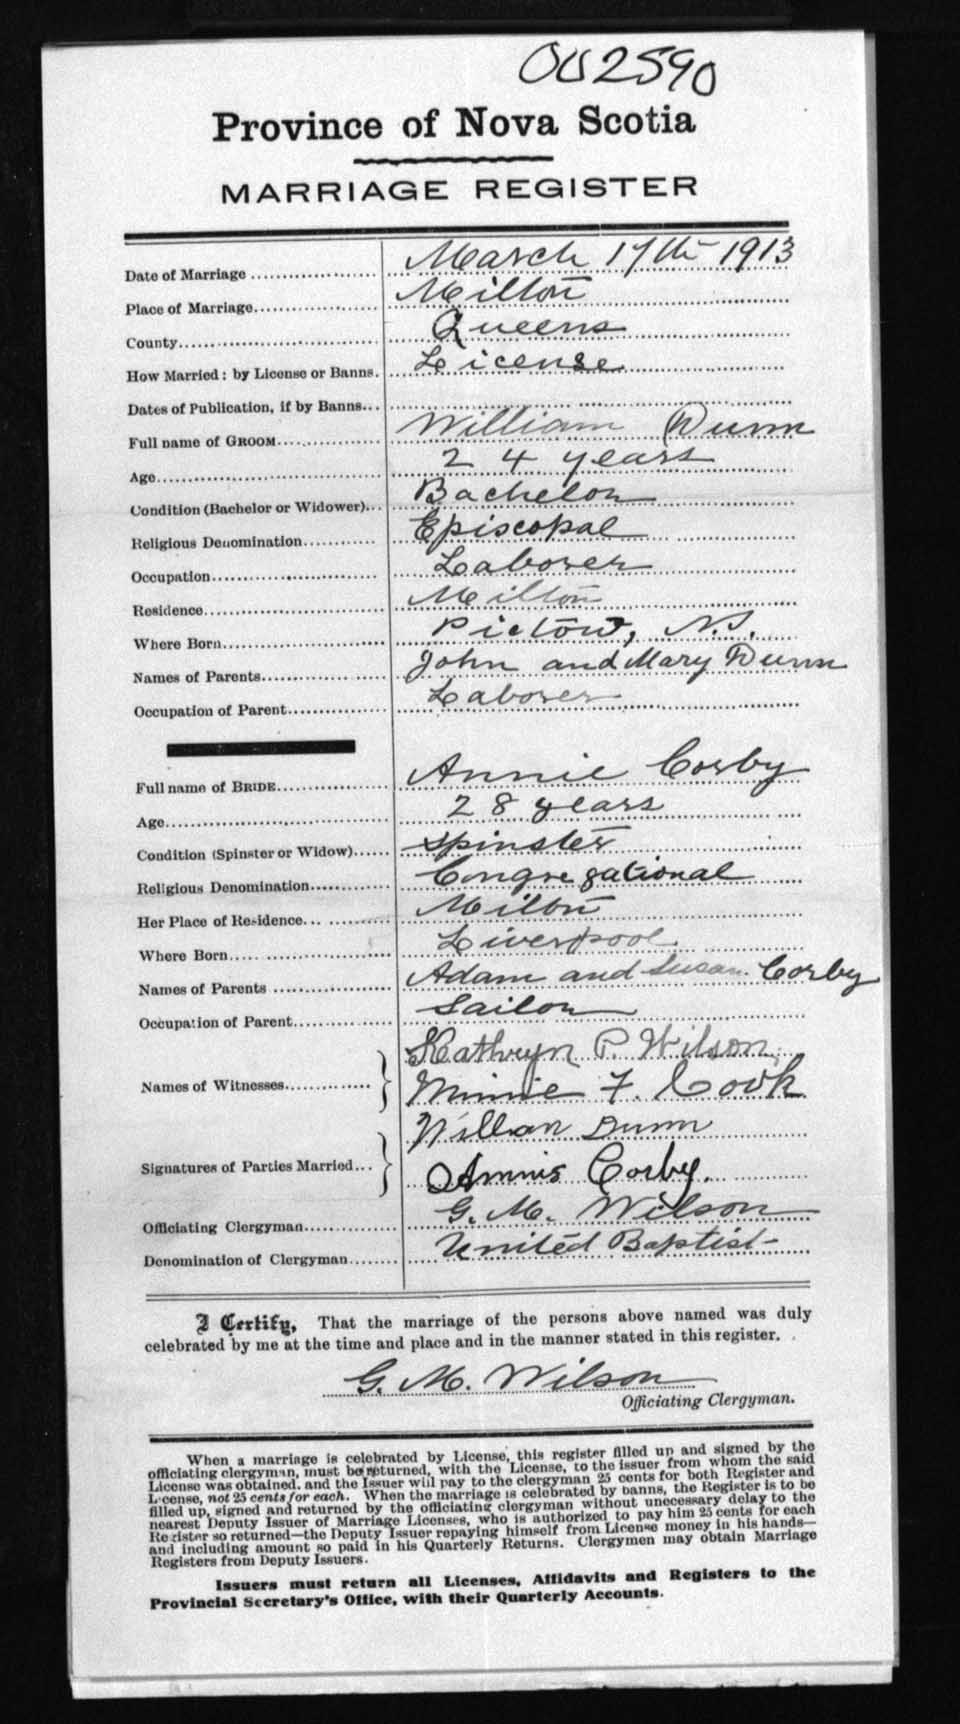 002590
Province of Nova Scotia
MARRIAGE REGISTER
Date of Marriage March 17th 1913
Place of Marriage Milton
County Queens
How Married: by License or Banns. License
Dates of Publication, if by Banns
Full name of GROOM William Dunn
Age 24 years
Condition (Bachelor or Widower) Bachelor
Religious Denomination Episcopal
Occupation Laborer
Residence Milton
Where Born Pictou, N.S.
Names of Parents John and Mary Dunn
Occupation of Parent Laborer
Full name of BRIDE Annie Corby
Age 28 years
Condition (Spinster or Widow) Spinster
Religious Denomination Congregational
Her Place of Residence Milton
Where Born Liverpool
Names of Parents Adam and Susan Corby
Occupation of Parent Sailor
Kathryn P. Wilson
Names of Witnesses Minnie F. Cook
William Dunn
Signatures of Parties Married Annie Corby.
Officiating Clergyman G. M. Wilson
Denomination of Clergyman United Baptist
I Certify, That the marriage of the persons above named was duly
celebrated by me at the time and place and in the manner stated in this register.
G. M. Wilson
Officiating Clergyman.
When a marriage is celebrated by License, this register filled up and signed by the
officiating clergyman, must be returned, with the License, to the issuer from whom the said
License was obtained, and the Issuer will pay to the clergyman 25 cents for both Register and
License, not 25 cents for each. When the marriage is celebrated by banns, the Register is to be
filled up, signed and returned by the officiating clergyman without unnecessary delay to the
nearest Deputy Issuer of Marriage Licenses, who is authorized to pay him 25 cents for each
Register so returned—the Deputy Issuer repaying himself from License money in his hands—
and including amount so paid in his Quarterly Returns. Clergymen may obtain Marriage
Registers from Deputy Issuers.
Issuers must return all Licenses, Affidavits and Registers to the
Provincial Secretary's Office, with their Quarterly Accounts.